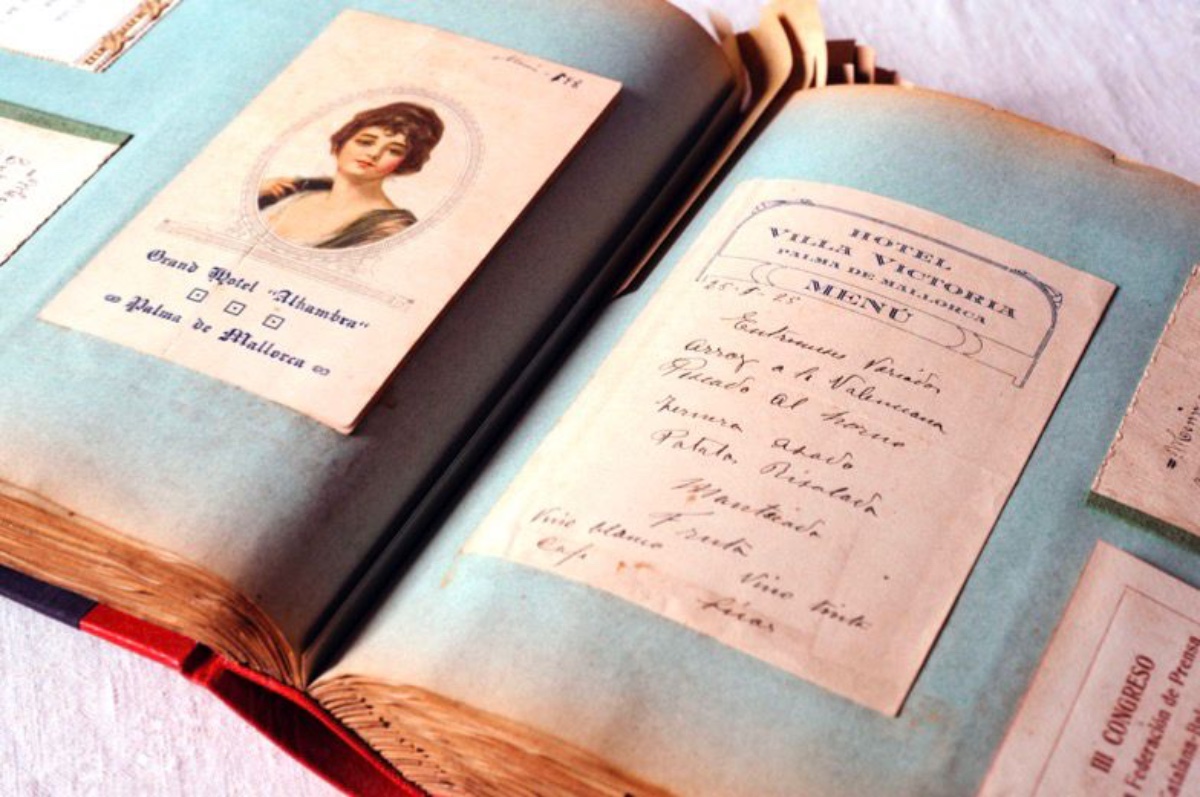 Grand Hotel "Alhambra"
Palma de Mallorca
HOTEL
VILLA VICTORIA
PALMA DE MALLORCA
MENÚ
Entremeses Variados
Arroz a la Valenciana
Pescado al horno
Ternera asado
Patatas Risolada
Mantecado
Fruta
Vino blanco
Vino tinto
Café
Licor
III CONGRESO
Federación de Prensa